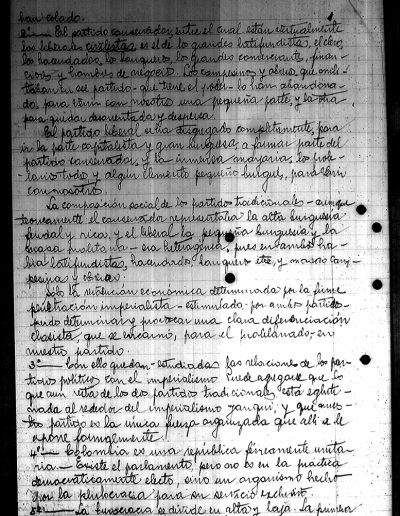 han colado.
2º — El partido conservador, entre el cual están virtualmente
los liberales es el de los grandes latifundistas, el clero,
los hacendados, los banqueros, los grandes comerciantes, finan-
cieros y hombres de negocio. Los campesinos y obreros que mili-
taban en ese partido - que tiene el poder - lo han abandona-
do, para venir con nosotros una pequeña parte, y la otra
para quedar desorientada y dispersa.
El partido liberal está disgregado completamente, para
ir la parte capitalista y gran burguesa, a formar parte del
partido conservador, y la inmensa mayoría, los prole-
tarios todo y algún elemento pequeño burgués, para venir
con nosotros.
La composición social de los partidos tradicionales - aunque
teóricamente el conservador representaba la alta burguesía
feudal y rica, y el liberal la pequeña burguesía y la
escasa proletaria - era heterogénea, pues en ambos ha-
bía latifundistas, hacendados, banqueros etc, y masas cam-
pesinas y obreras.
Solo la revolución económica determinada por la firme
penetración imperialista - estimulada por ambos partidos -
pudo determinar y provocar una clara diferenciación
clasista, que se encarnó, para el proletariado, en
nuestro partido.
3º — Con ello quedan estudiadas las relaciones de los par-
tidos políticos con el imperialismo. Puede agregarse que lo
que aun resta de los dos partidos tradicionales está agluti-
nada al rededor del imperialismo yanqui, y que nues-
tro partido es la única fuerza organizada que allí se le
opone formalmente.
4º — Colombia es una república férreamente unita-
ria — Existe el parlamento, pero no es en la práctica
democráticamente electo, sino un organismo hecho
por la plutocracia para su servicio exclusivo.
5º — La burocracia se divide en alta y baja. La primera